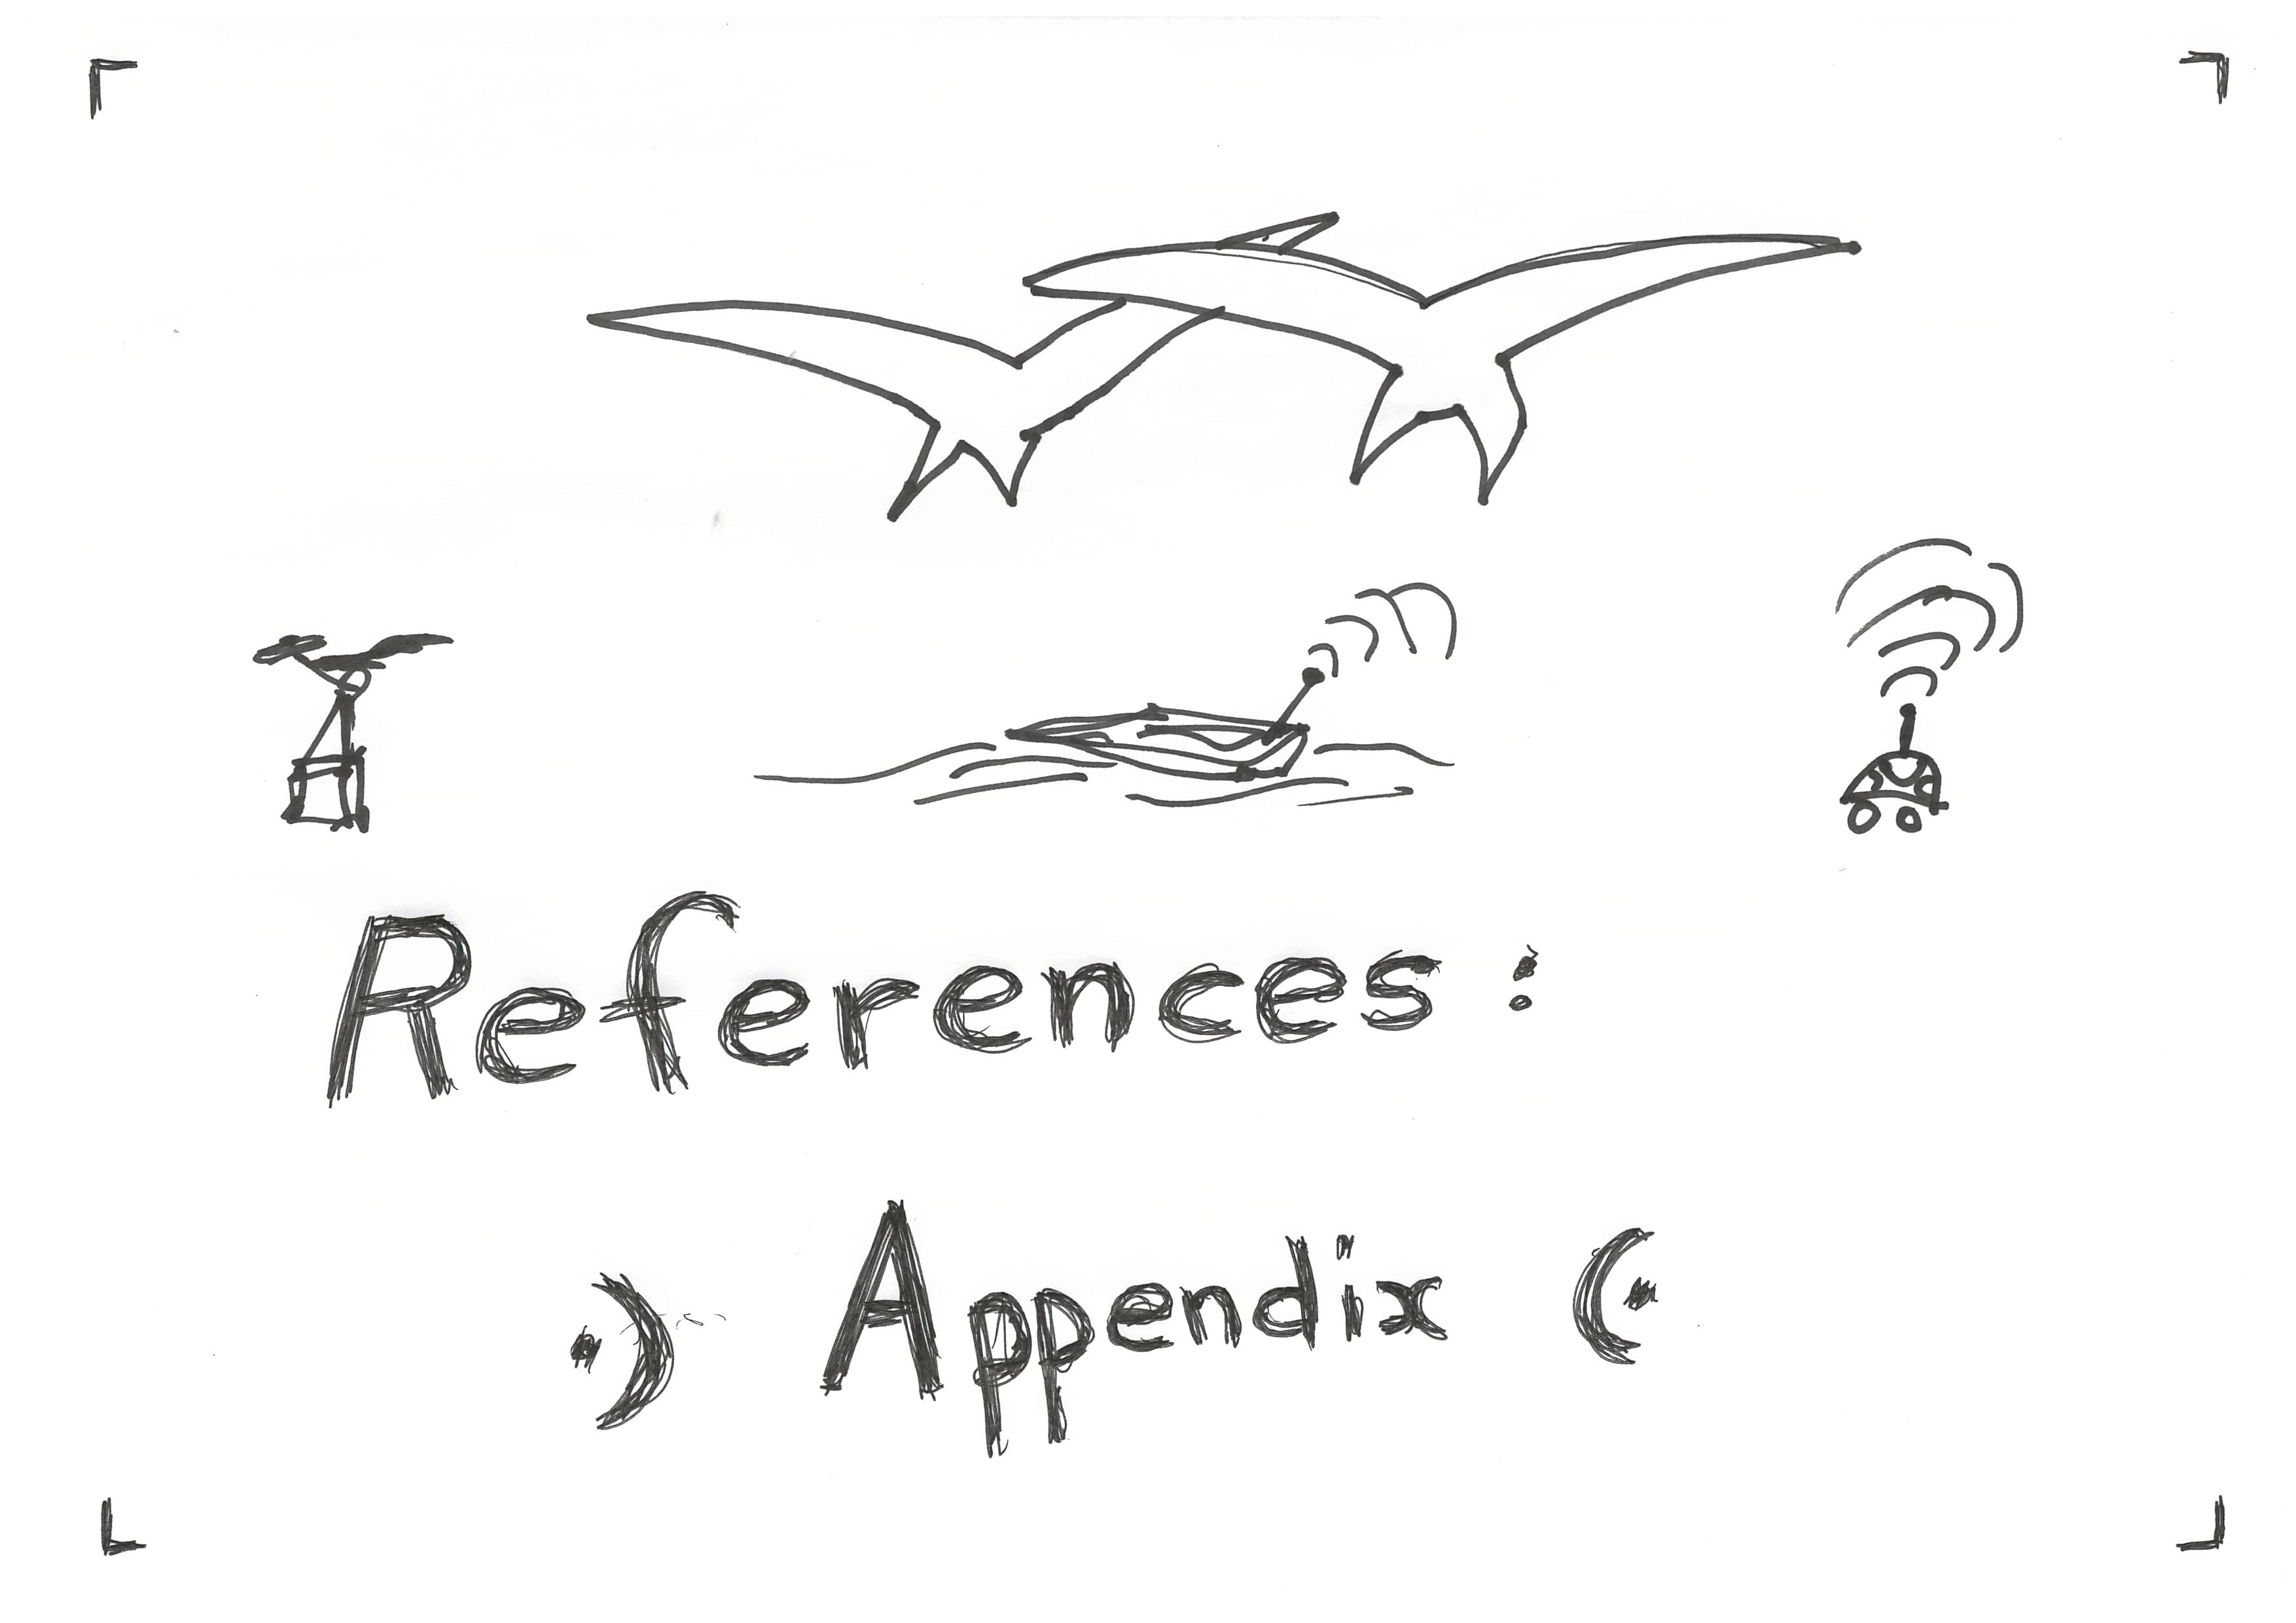 References :
·) Appendix (·